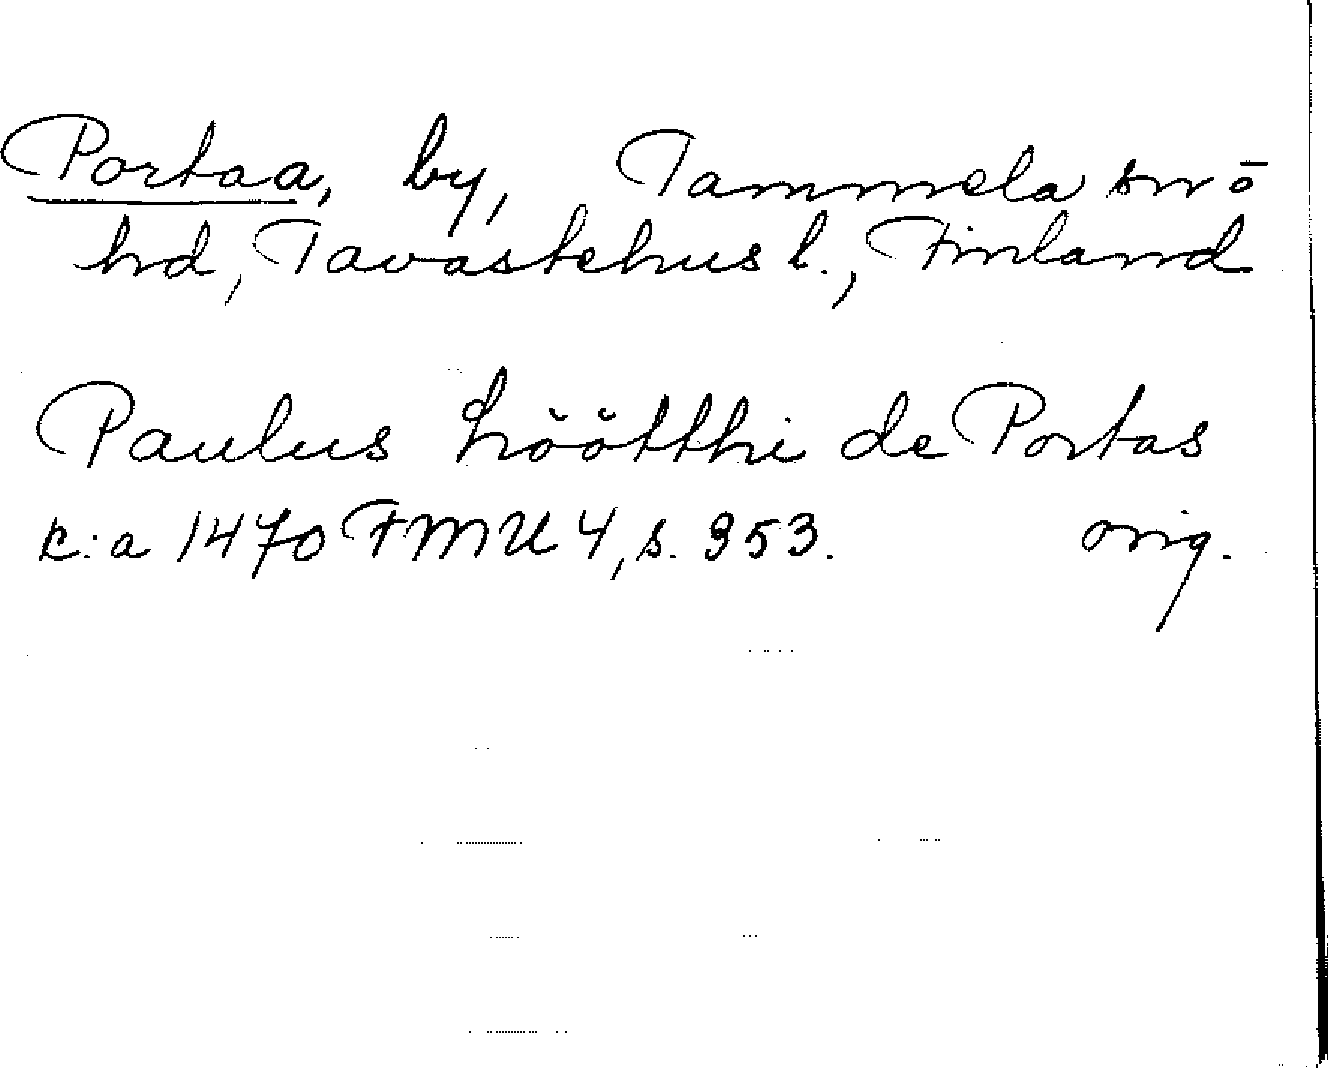 Portaa, by, Tammela sn o
hd, Tavastehus l., Finland
Paulus Lröötthi de Portas
c:a 1470 FMU 4, s. 353. orig.